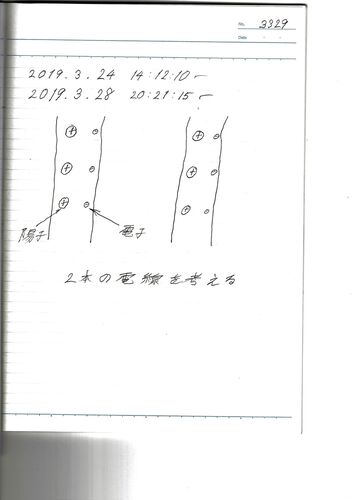 No. 3329
Date
2019.3.24 14:12:10〜
2019.3.28 20:21:15〜
陽子 電子
2本の電線を考える